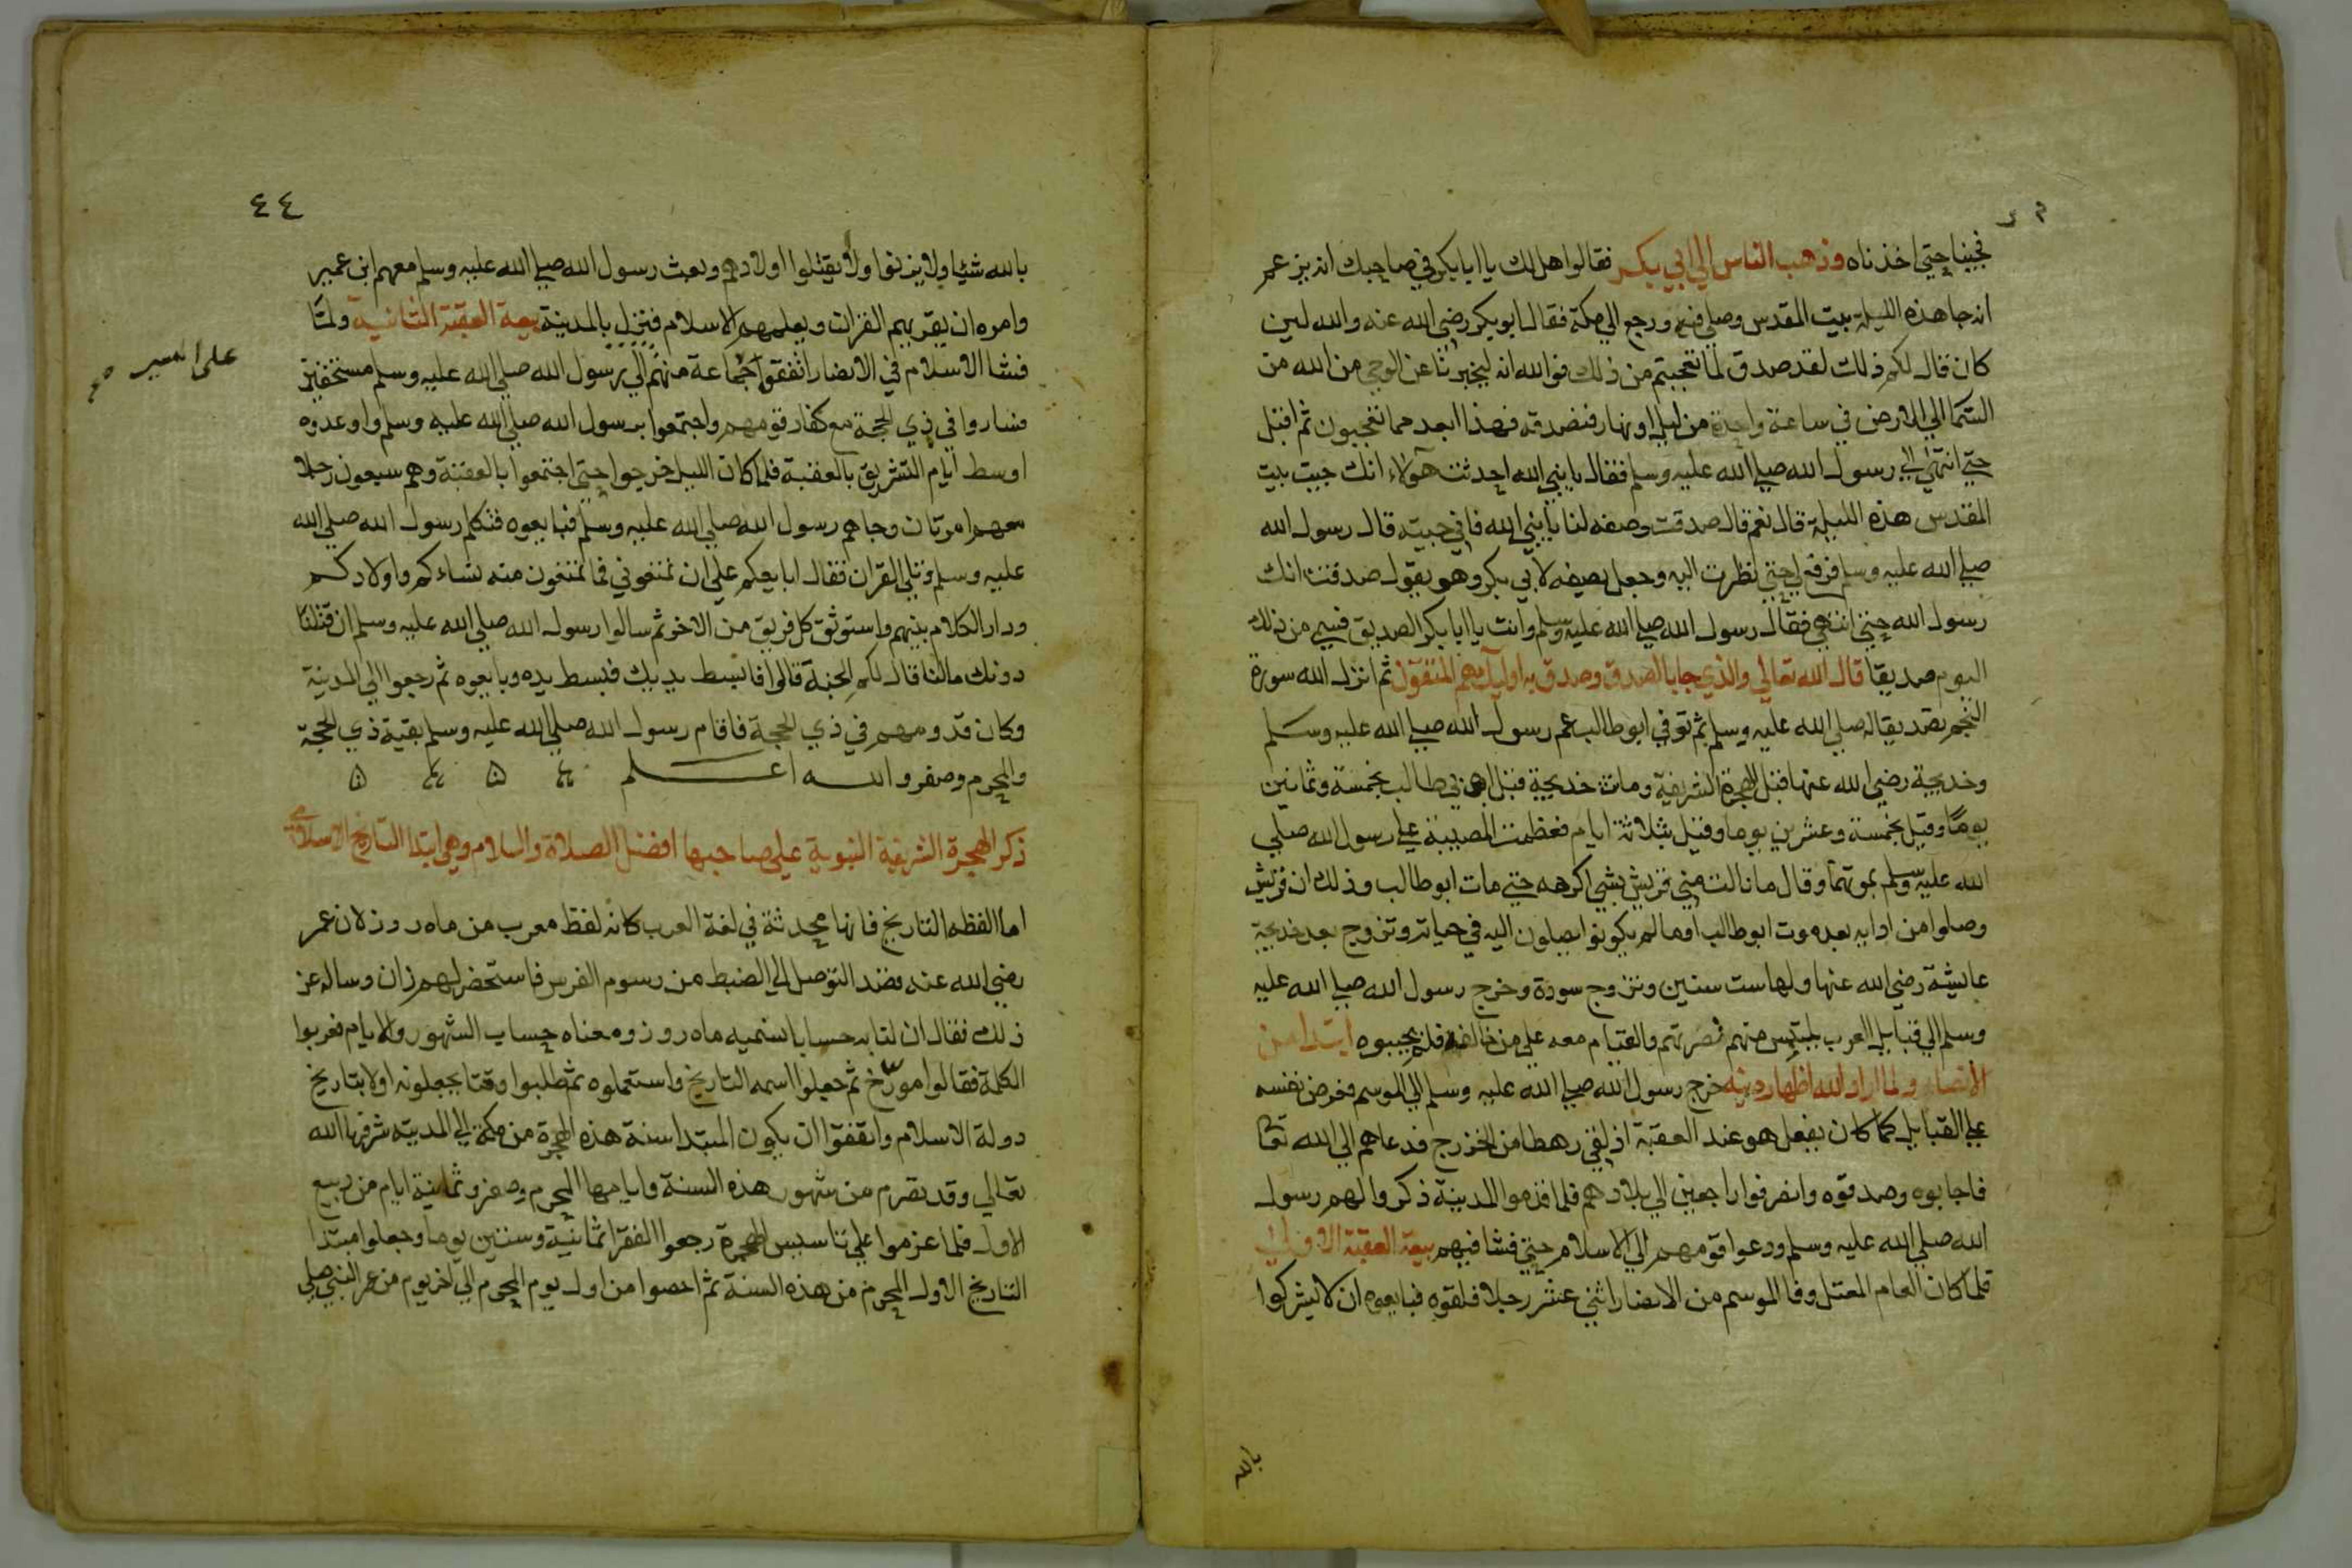 فجينا حتى اخذناه وذهب الناس الي ابي بكر فقالوا هل لك يا ابا بكر في صاحبك انه يزعم
انه جا هذه الليلة بيت المقدس وصلي فيه ورجع الي مكة فقال ابو بكر رضي الله عنه والله لين
كان قال لكم ذلك لقد صدق لما تعجبتم من ذلك فوالله انه ليخبرنا عن الوحي من الله من
السما الي الارض في ساعة واحدة من ليل او نهار فنصدقه فهذا ابعد مما تعجبون ثم اقبل
حتي انتهي الي رسول الله صلي الله عليه وسلم فقال يا نبي الله احدثت هولاء انك جيت بيت
المقدس هذه الليلة قال نعم قال صدقت وصفه لنا يا نبي الله فاني جيته قال رسول الله
صلي الله عليه وسلم فرفع لي حتي نظرت اليه وجعل يصفه لابي بكر وهو يقول صدقت انك
رسول الله حتي انتهي فقال رسول الله صلي الله عليه وسلم وانت يا ابا بكر الصديق فسمي من ذلك
اليوم صديقا قال الله تعالي والذي جا بالصدق وصدق به اوليك هم المتقون ثم انزل الله سورة
النجم تصديقا له صلي الله عليه وسلم ثم توفي ابو طالب عم رسول الله صلي الله عليه وسلم
وخديجة رضي الله عنها قبل الهجرة الشريفة وماتت خديجة قبل ابي طالب بخمسة وثمانين
يوما وقيل بخمسة وعشرين يوما وقيل بثلاثة ايام فعظمت المصيبة علي رسول الله صلي
الله عليه وسلم بموتهما وقال ما نالت مني قريش بشي اكرهه حتي مات ابو طالب وذلك ان قريش
وصلوا من اذايه بعد موت ابو طالب الي ما لم يكونوا يصلون اليه في حياته وتزوج بعد خديجة
عايشة رضي الله عنها ولها ست سنين وتزوج سودة وخرج رسول الله صلي الله عليه
وسلم الي قبايل العرب يلتمس منهم نصرتهم والقيام معه علي من خالفه فلم يجيبوه ابتدا من
الانصار ولما اراد الله اظهار دينه خرج رسول الله صلي الله عليه وسلم الي الموسم فعرض نفسه
علي القبايل كما كان يفعل هو عند العقبة اذ لقي رهطا من الخزرج فدعاهم الي الله تعا
فاجابوه وصدقوه وانصرفوا راجعين الي بلادهم فلما قدموا المدينة ذكروا لهم رسول
الله صلي الله عليه وسلم ودعوا قومهم الي الاسلام حتي فشا فيهم بيعة العقبة الاولي
فلما كان العام المقبل وفا الموسم من الانصار اثني عشر رجلا فلقوه فبايعوه ان لا يشركوا
بالله
٤٤
بالله شيا ولا يزنوا ولا يقتلوا اولادهم وبعث رسول الله صلي الله عليه وسلم معهم ابن عمير
وامره ان يقريهم القران ويعلمهم الاسلام فينزل بالمدينة بيعة العقبة الثانية ولما
فشا الاسلام في الانصار اتفقوا جماعة منهم الي رسول الله صلي الله عليه وسلم مستخفين
فساروا في ذي الحجة مع كفار قومهم واجتمعوا برسول الله صلي الله عليه وسلم واوعدوه
اوسط ايام التشريق بالعقبة فلما كان الليل خرجوا حتي اجتمعوا بالعقبة وهم سبعون رجلا
معهم امرتان وجاهم رسول الله صلي الله عليه وسلم فبايعوه فتكلم رسول الله صلي الله
عليه وسلم وتلي القران فقال ابايعكم علي ان تمنعوني فما تمنعون منه نساءكم واولادكم
ودار الكلام بينهم واستوثق كل فريق من الاخر ثم سالوا رسول الله صلي الله عليه وسلم ان قتلنا
دونك مالنا قال لكم الجنة قالوا فابسط يديك فبسط يده وبايعوه ثم رجعوا الي المدينة
وكان قدومهم في ذي الحجة فاقام رسول الله صلي الله عليه وسلم بقية ذي الحجة
والمحرم وصفر والله اعلم
ذكر الهجرة الشريفة النبوية علي صاحبها افضل الصلاة والسلام وهي ابتدا التاريخ الاسلامي
اما الفظه التاريخ فانها محدثة في لغة العرب كانه لفظ معرب من ماه روز لان عمر
رضي الله عنه قصد التوصل الي الضبط من رسوم الفرس فاستحضر لهرمزان وساله عن
ذلك فقال ان لنا به حسابا نسميه ماه روز ومعناه حساب الشهور والايام فعربوا
الكلمة فقالوا مورخ ثم جعلوا اسمه التاريخ واستعملوه ثم طلبوا وقتا يجعلونه اولا بتاريخ
دولة الاسلام واتفقوا ان يكون المبتدا سنة هذه الهجرة من مكة الي المدينه شرفها الله
تعالي وقد تصرم من شهور هذه السنة وايامها المحرم وصفر وثمانية ايام من ربيع
الاول فلما عزموا علي تاسيس الهجرة رجعوا القهقرا ثمانية وستين يوما وجعلوا مبتدا
التاريخ الاول المحرم من هذه السنة ثم احصوا من اول يوم المحرم الي اخر يوم من عمر النبي صلي